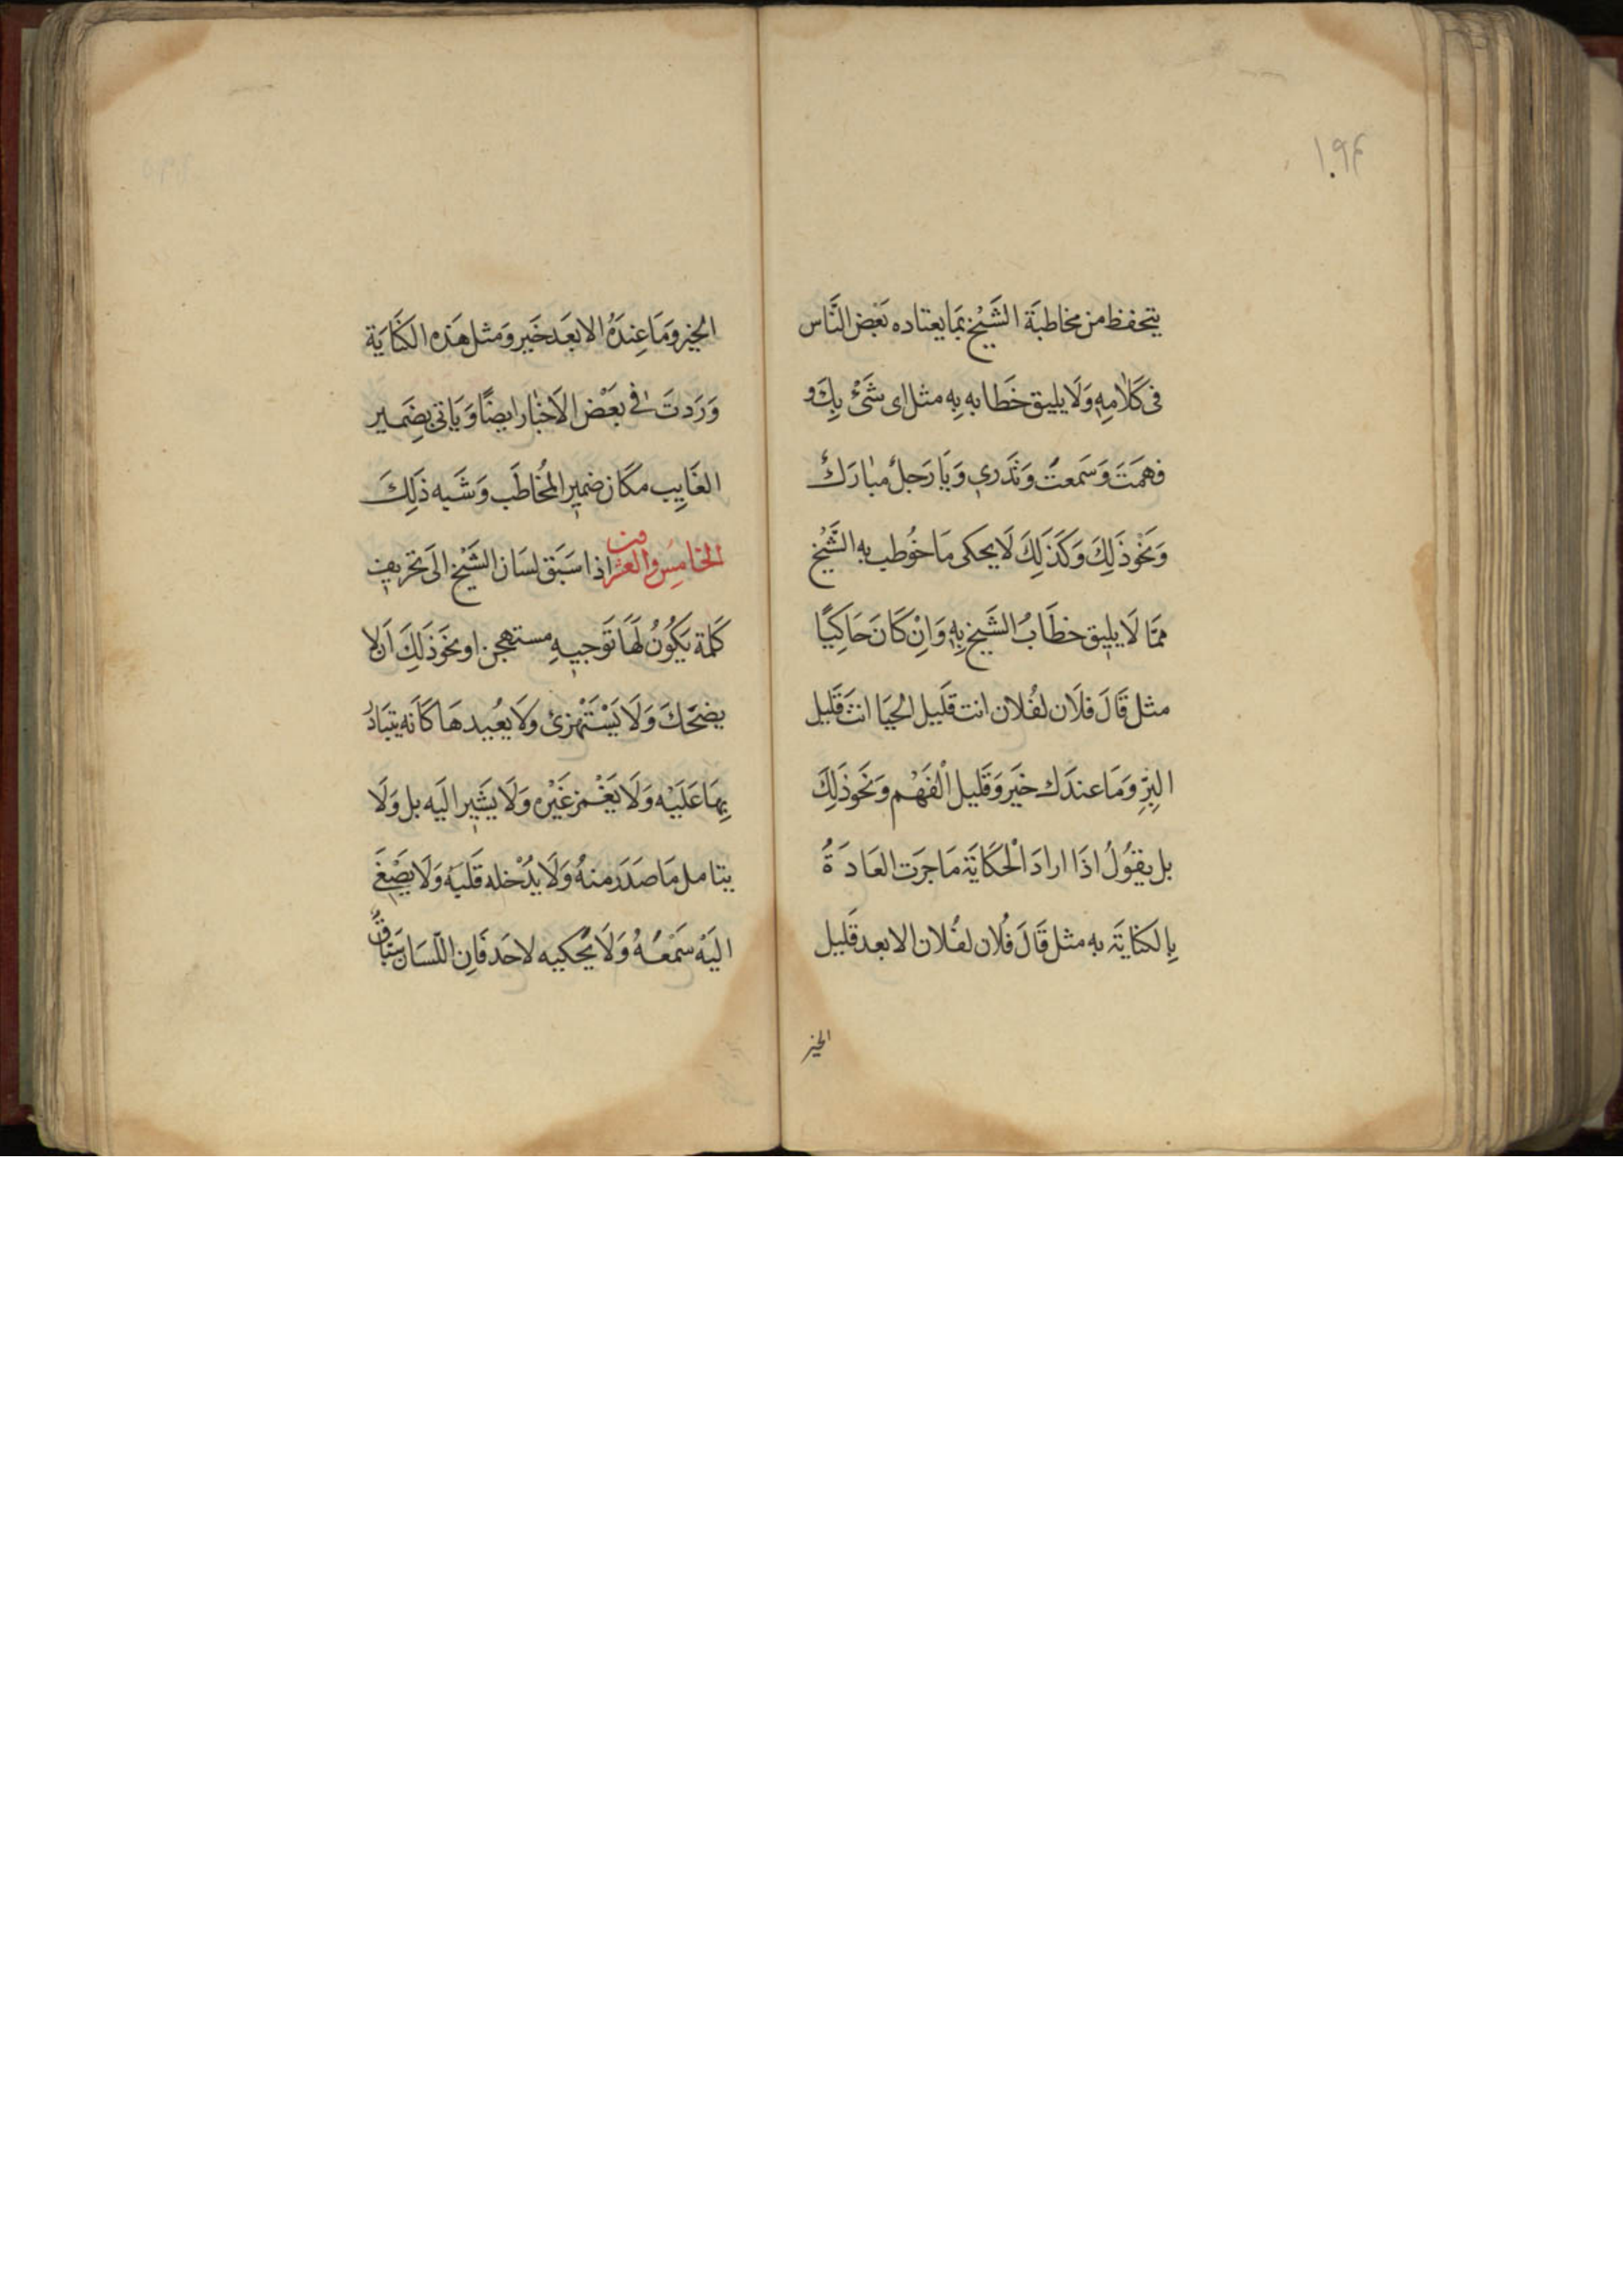 ١٩٤
يتحفظ من مخاطبَة الشَيْخ بمَا يعتاده بَعْض النَّاس
فى كَلَامِهِ وَلَا يليق خطَابه بِهِ مثل اى شَىْء بِكَ و
فهمَتَ وَسَمعتَ وَتَدَرى وَيَا رَجلُ مبارَكُ
وَنحَوْ ذَلِكَ وَكَذَلِكَ لَا يحكى مَا خُوطب بِهِ الشَّيْخ
ممَّا لَا يليق خطَابُ الشَيخ بِهِ وَاِنْ كَانَ حَاكِيًا
مثل قَالَ فلَان لفُلان انت قَليل الحيَا انتَ قَليل
البِرِّ وَمَا عندَك خَيَر وَقَليل الْفَهْم وَنَحَوذَلِكَ
بل يقُوُلُ اذَا ارادَ الْحكَايَة مَا جرَت العَادَةُ
بِالكنَايَة به مثل قَالَ فُلان لفُلان الابعد قَليل
الخير
الخير وَمَا عِندَهُ الابعَد خَير وَمثل هَذه الكنَايَة
وَرَدتَ فى بَعْض الاَخبَار ايضًا وَيَاتى بضَمير
الغَايِب مكَان ضمير المُخاطَب وَشَبه ذَلِكَ
الخَامِسَ والعشرون اذا سَبَق لسَان الشَيْخ الَى تحَريف
كَلمة يَكُونُ لهَا تَوجيه مستهجن او نحَوَذلِكَ اَن لا
يضحَكَ وَلَا يَسْتَهْزئ وَلَا يعُيدهَا كَاَنه يتبَادُر
بهَا عَليْه وَلَا يَغْمز غَيْره وَلَا يشَير اليَه بل وَلَا
يتامل مَا صَدَر منهُ وَلَا يُدْخله قَلبَهُ وَلَا يصْغَى
اليَهْ سَمْعَهُ وَلَا يَحْكيه لاحَد فَاِن اللّسَان سَبَّاقٌ